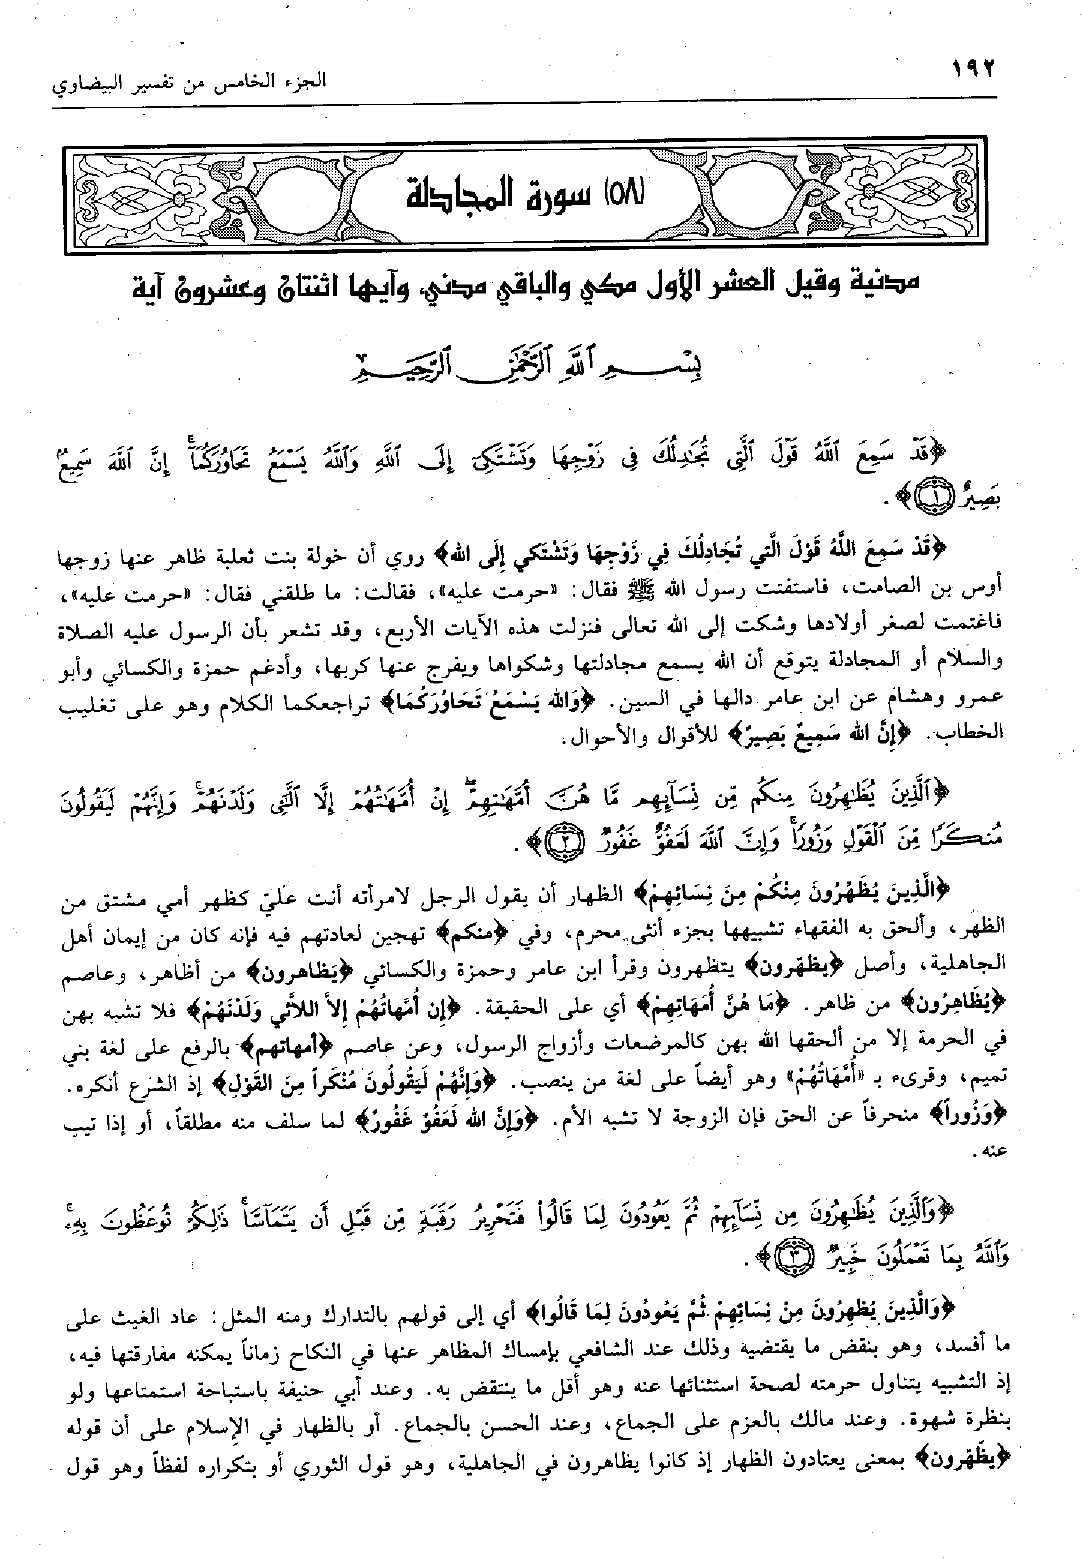 ١٩٢
الجزء الخامس من تفسير البيضاوي
(٥٨) سورة المجادلة
مدنية وقيل العشر الأول مكي والباقي مدني، وآيها اثنتان وعشرون آية
بِسْمِ ٱللَّهِ ٱلرَّحْمَٰنِ ٱلرَّحِيمِ
﴿قَدْ سَمِعَ ٱللَّهُ قَوْلَ ٱلَّتِى تُجَٰدِلُكَ فِى زَوْجِهَا وَتَشْتَكِىٓ إِلَى ٱللَّهِ وَٱللَّهُ يَسْمَعُ تَحَاوُرَكُمَآ إِنَّ ٱللَّهَ سَمِيعٌۢ
بَصِيرٌ ١﴾.
﴿قَدْ سَمِعَ اللَّهُ قَوْلَ الَّتِي تُجَادِلُكَ فِي زَوْجِهَا وَتَشْتَكِي إِلَى الله﴾ روي أن خولة بنت ثعلبة ظاهر عنها زوجها
أوس بن الصامت، فاستفتت رسول الله ﷺ فقال: «حرمت عليه»، فقالت: ما طلقني فقال: «حرمت عليه»،
فاغتمت لصغر أولادها وشكت إلى الله تعالى فنزلت هذه الآيات الأربع، وقد تشعر بأن الرسول عليه الصلاة
والسلام أو المجادلة يتوقع أن الله يسمع مجادلتها وشكواها ويفرج عنها كربها، وأدغم حمزة والكسائي وأبو
عمرو وهشام عن ابن عامر دالها في السين. ﴿وَالله يَسْمَعُ تَحَاوُرَكُمَا﴾ تراجعكما الكلام وهو على تغليب
الخطاب. ﴿إِنَّ الله سَمِيعٌ بَصِيرٌ﴾ للأقوال والأحوال.
﴿ٱلَّذِينَ يُظَٰهِرُونَ مِنكُم مِّن نِّسَآئِهِم مَّا هُنَّ أُمَّهَٰتِهِمْ إِنْ أُمَّهَٰتُهُمْ إِلَّا ٱلَّٰٓـِٔى وَلَدْنَهُمْ وَإِنَّهُمْ لَيَقُولُونَ
مُنكَرًا مِّنَ ٱلْقَوْلِ وَزُورًا وَإِنَّ ٱللَّهَ لَعَفُوٌّ غَفُورٌ ٢﴾.
﴿الَّذِينَ يُظَهِّرُونَ مِنْكُمْ مِنَ نِسَائِهِمْ﴾ الظهار أن يقول الرجل لامرأته أنت عليّ كظهر أمي مشتق من
الظهر، وألحق به الفقهاء تشبيهها بجزء أنثى محرم، وفي ﴿منكم﴾ تهجين لعادتهم فيه فإنه كان من إيمان أهل
الجاهلية، وأصل ﴿يظهرون﴾ يتظهرون وقرأ ابن عامر وحمزة والكسائي ﴿يَظاهرون﴾ من أظاهر، وعاصم
﴿يُظَاهِرُون﴾ من ظاهر. ﴿مَا هُنَّ أُمَهَاتِهِمْ﴾ أي على الحقيقة. ﴿إِن أُمَّهَاتُهُمْ إِلاَّ اللاَّئي وَلَدْنَهُمْ﴾ فلا تشبه بهن
في الحرمة إلا من ألحقها الله بهن كالمرضعات وأزواج الرسول، وعن عاصم ﴿أمهاتهم﴾ بالرفع على لغة بني
تميم، وقرىء بـ «أُمَّهَاتُهُمْ» وهو أيضاً على لغة من ينصب. ﴿وَإِنَّهُمْ لَيَقُولُونَ مُنْكَراً مِنَ القَوْلِ﴾ إذ الشرع أنكره.
﴿وَزُوراً﴾ منحرفاً عن الحق فإن الزوجة لا تشبه الأم. ﴿وَإِنَّ الله لَعَفُوٌ غَفُورٌ﴾ لما سلف منه مطلقاً، أو إذا تيب
عنه.
﴿وَٱلَّذِينَ يُظَٰهِرُونَ مِن نِّسَآئِهِمْ ثُمَّ يَعُودُونَ لِمَا قَالُوا۟ فَتَحْرِيرُ رَقَبَةٍ مِّن قَبْلِ أَن يَتَمَآسَّا ذَٰلِكُمْ تُوعَظُونَ بِهِۦ
وَٱللَّهُ بِمَا تَعْمَلُونَ خَبِيرٌ ٣﴾.
﴿وَالَّذِينَ يَظَّهَرُونَ مِنْ نِسَائِهِمْ ثُمَّ يَعُودُونَ لِمَا قَالُوا﴾ أي إلى قولهم بالتدارك ومنه المثل: عاد الغيث على
ما أفسد، وهو بنقض ما يقتضيه وذلك عند الشافعي بإمساك المظاهر عنها في النكاح زماناً يمكنه مفارقتها فيه،
إذ التشبيه يتناول حرمته لصحة استثنائها عنه وهو أقل ما ينتقض به. وعند أبي حنيفة باستباحة استمتاعها ولو
بنظرة شهوة. وعند مالك بالعزم على الجماع، وعند الحسن بالجماع. أو بالظهار في الإسلام على أن قوله
﴿يظّهرون﴾ بمعنى يعتادون الظهار إذ كانوا يظاهرون في الجاهلية، وهو قول الثوري أو بتكراره لفظاً وهو قول